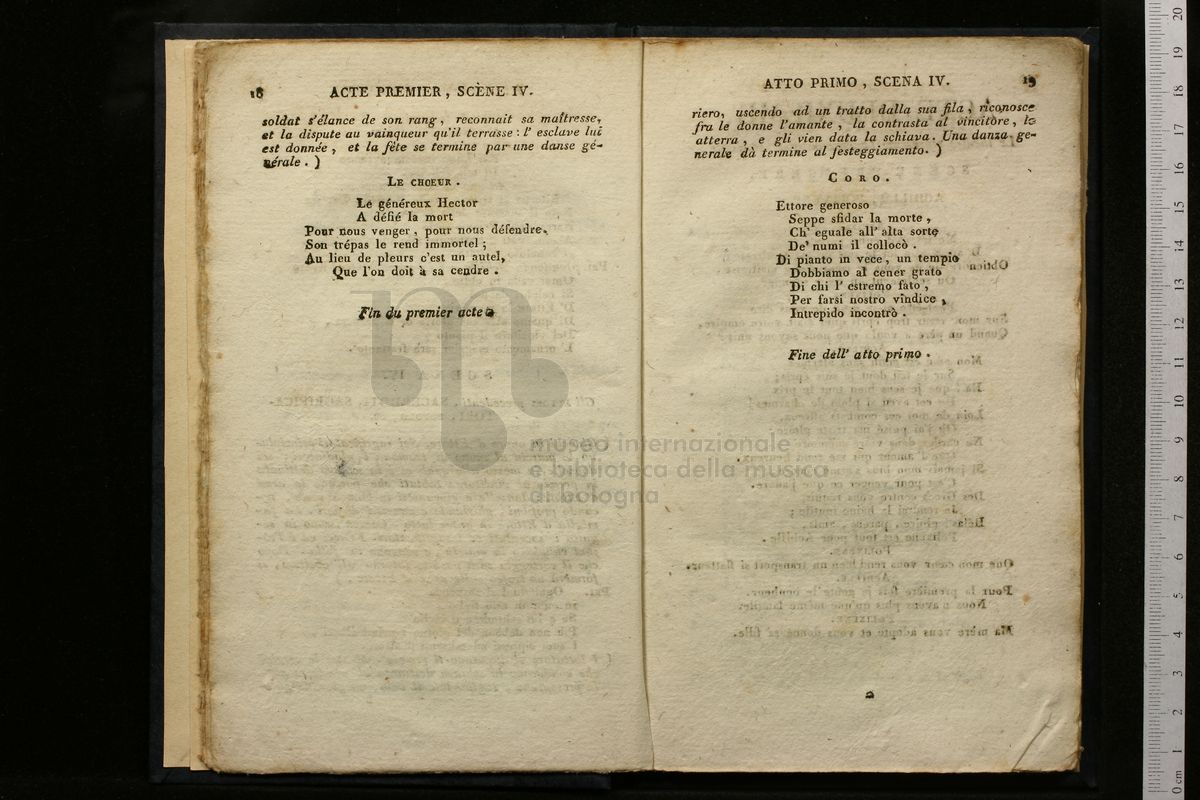 18 ACTE PREMIER, SCÈNE IV.
soldat s'élance de son rang, reconnait sa maîtresse,
et la dispute au vainqueur qu'il terrasse: l' esclave lui
est donnée, et la fête se termine par une danse gé-
nérale. )
LE CHOEUR.
Le généreux Hector
A défié la mort
Pour nous venger, pour nous défendre,
Son trépas le rend immortel;
Au lieu de pleurs c'est un autel,
Que l'on doit à sa cendre.
Fin du premier acte
ATTO PRIMO, SCENA IV. 19
riero, uscendo ad un tratto dalla sua fila, riconosce
fra le donne l'amante, la contrasta al vincitore, lo
atterra, e gli vien data la schiava. Una danza ge-
nerale dà termine al festeggiamento. )
CORO.
Ettore generoso
Seppe sfidar la morte,
Ch' eguale all' alta sorte
De' numi il collocò.
Di pianto in vece, un tempio
Dobbiamo al cener grato
Di chi l' estremo fato,
Per farsi nostro vindice,
Intrepido incontrò.
Fine dell' atto primo.
museo internazionale
e biblioteca della musica
di bologna
0 cm 1 2 3 4 5 6 7 8 9 10 11 12 13 14 15 16 17 18 19 20